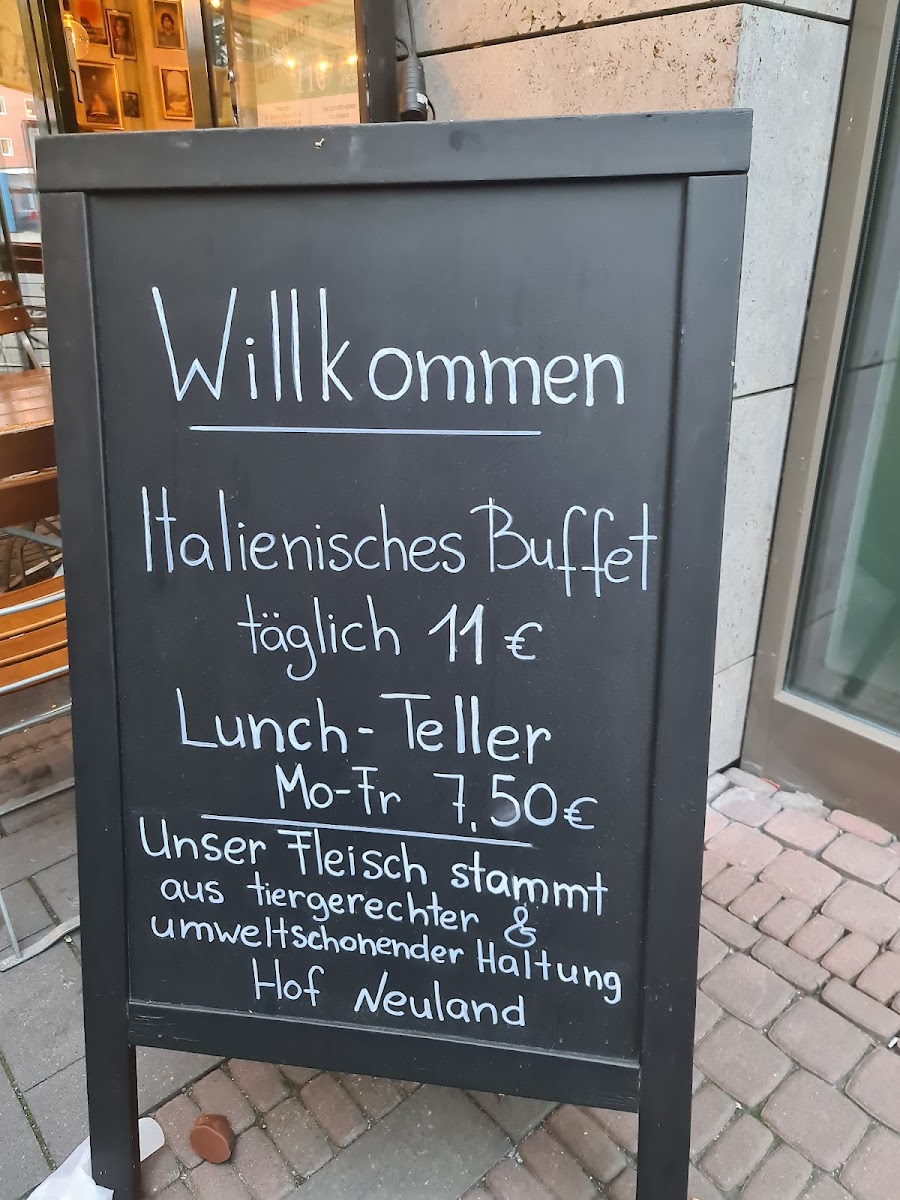 Willkommen
Italienisches Buffet
täglich 11 €
Lunch-Teller
Mo-Fr 7,50€
Unser Fleisch stammt
aus tiergerechter &
umweltschonender Haltung
Hof Neuland